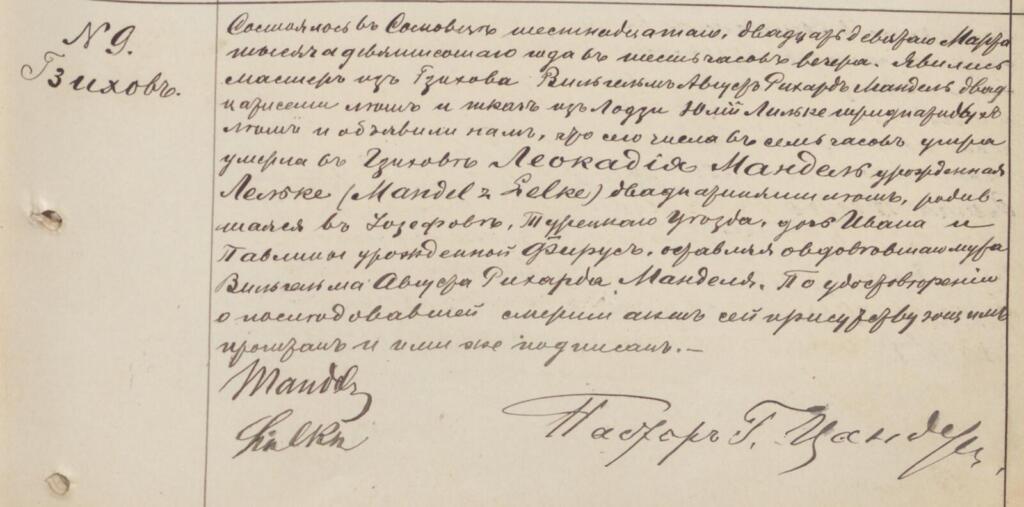 N 9.
Гзиховъ.
Состоялось въ Сосновицѣ шестнадцатаго, двадцать девятаго Марта
тысяча девятисотаго года въ шесть часовъ вечера. Явились
мастеръ изъ Гзихова Вильгельмъ Августъ Рихардъ Мандель двад-
цати семи лѣтъ и ткачъ изъ Лодзи Юлій Лильке тридцати двухъ
лѣтъ и объявили намъ, что сего числа въ семь часовъ утра
умерла въ Гзиховѣ Леокадія Мандель урожденная
Лельке (Mandel z Lelke) двадцати пяти лѣтъ, родив-
шаяся въ Іозефовѣ, Турецкаго Уѣзда, дочь Ивана и
Павлины урожденной Фирусъ, оставляя овдовѣвшаго мужа
Вильгельма Августа Рихарда Манделя. По удостовѣреніи
о послѣдовавшей смерти актъ сей присутствующимъ
прочтенъ и ими же подписанъ.—
Mandel
Lielke
Пасторъ Г. Цандеръ.